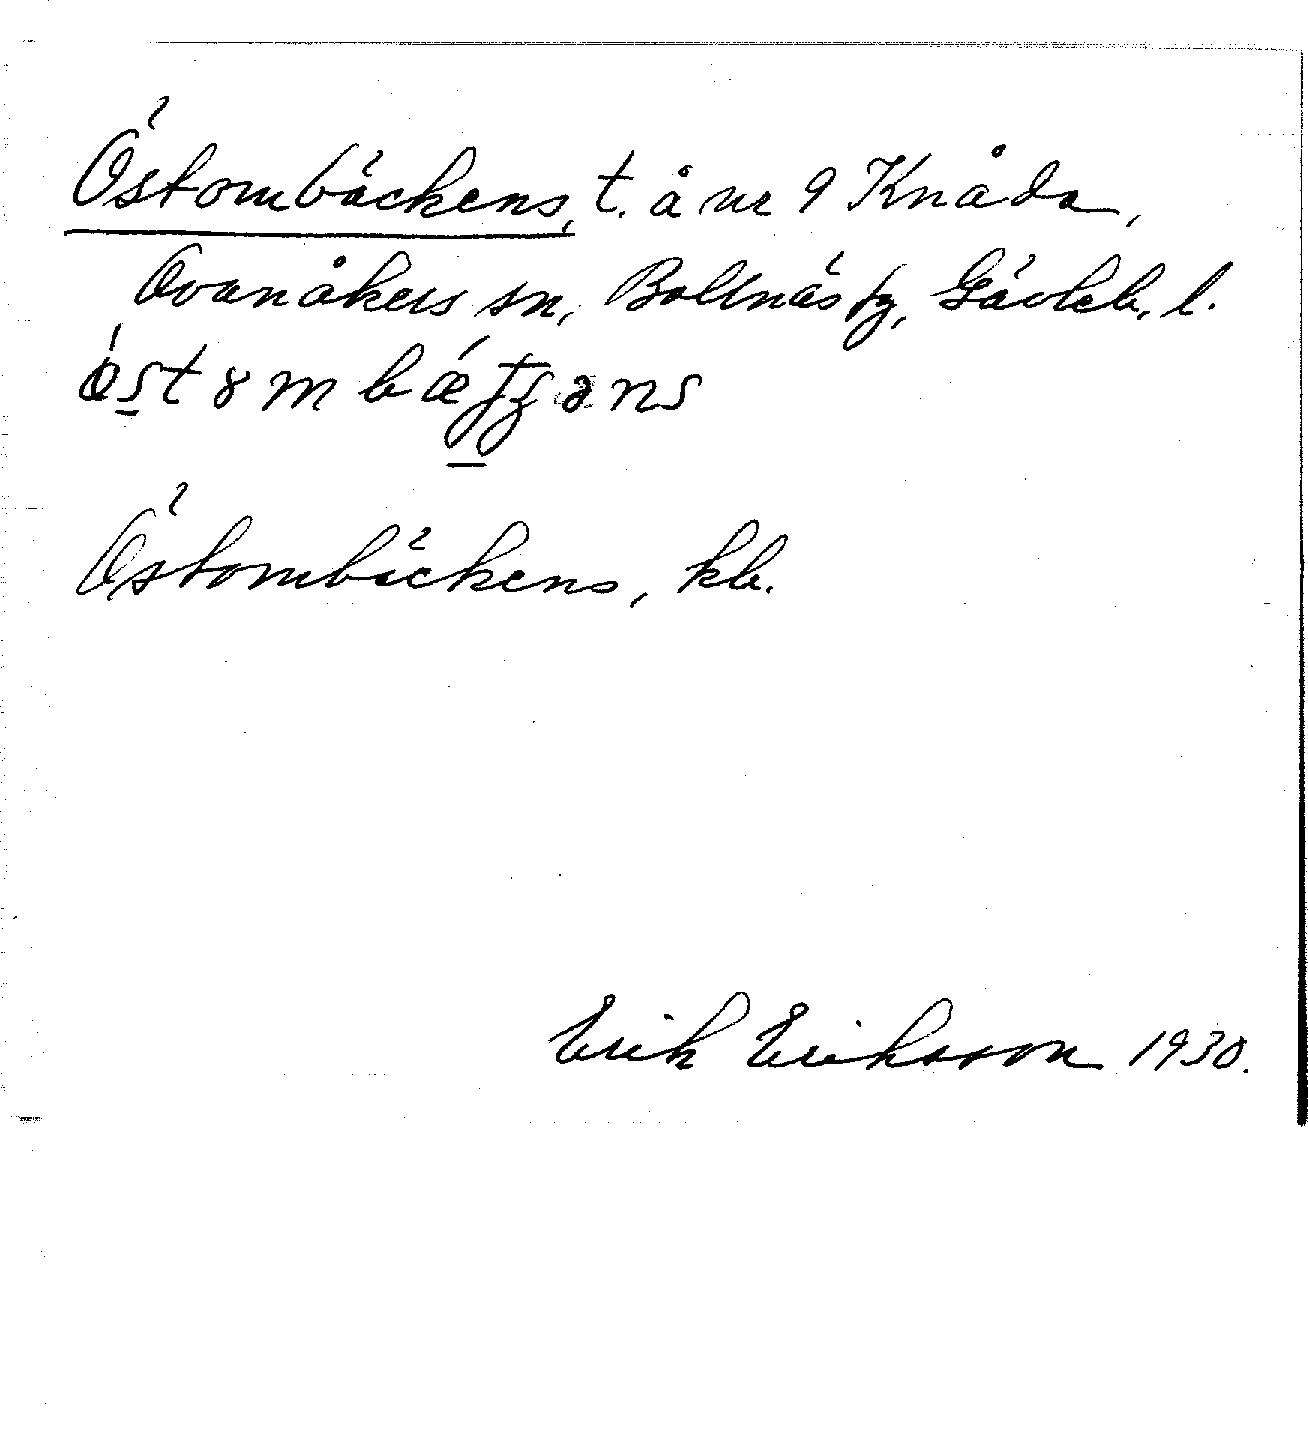 Östombäckens, t. å nr 9 Knåda,
Ovanåkers sn, Bollnäs fg, Gävleb. l.
Östombäckens, kb.
Erik Eriksson 1930.